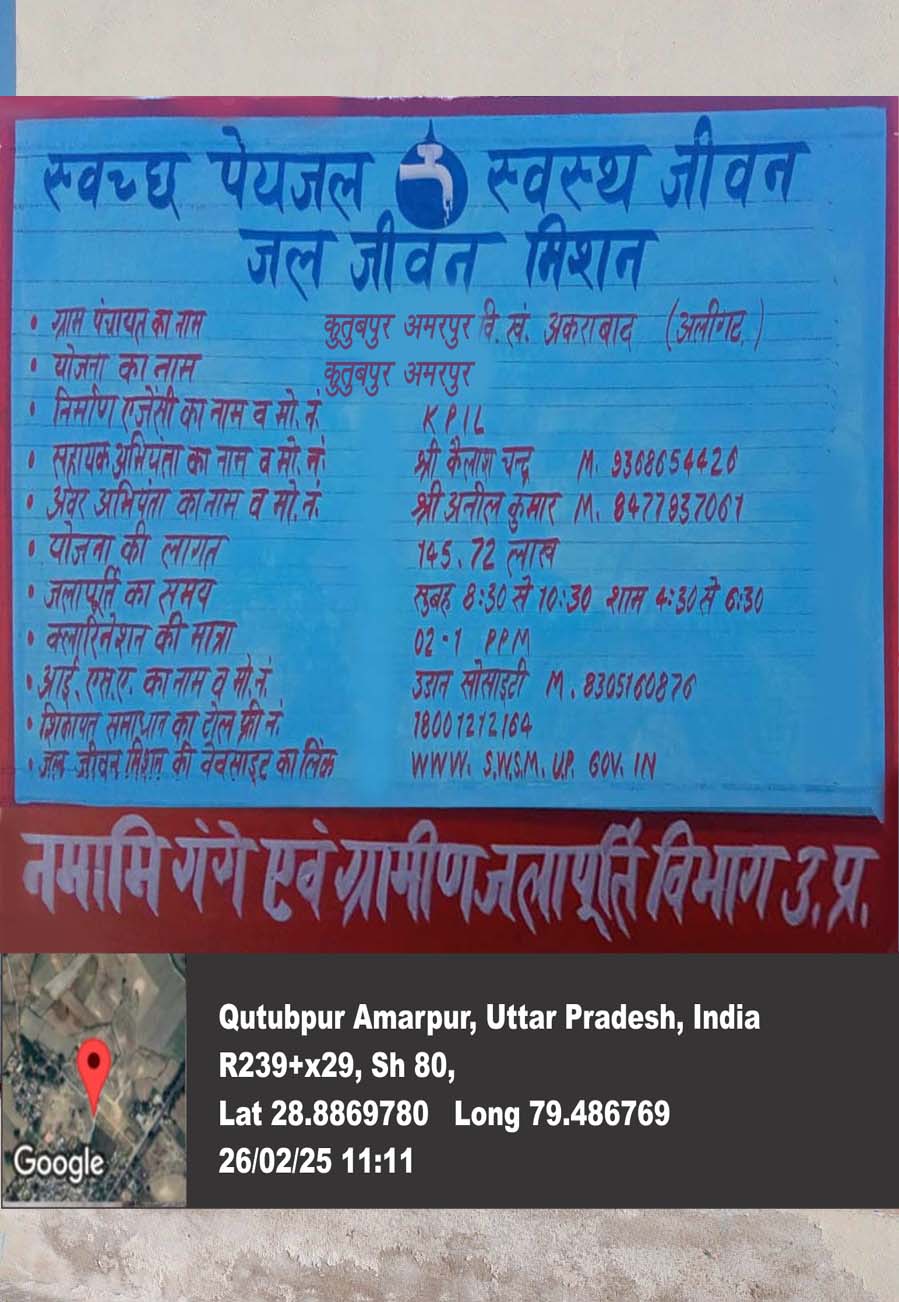 स्वच्छ पेयजल स्वस्थ जीवन
जल जीवन मिशन
• ग्राम पंचायत का नाम कुतुबपुर अमरपुर वि. खं. अकराबाद (अलीगढ़)
• योजना का नाम कुतुबपुर अमरपुर
• निर्माण एजेंसी का नाम व मो. नं. KPIL
• सहायक अभियंता का नाम व मो. नं. श्री कैलाश चन्द्र M. 9368654426
• अवर अभियंता का नाम व मो. नं. श्री अनील कुमार M. 8477837061
• योजना की लागत 145.72 लाख
• जलापूर्ति का समय सुबह 8:30 से 10:30 शाम 4:30 से 6:30
• क्लारिनेशन की मात्रा 02-1 PPM
• आई. एस.ए. का नाम व मो. नं. उडान सोसाइटी M. 8305160876
• शिकायत समाधान का टोल फ्री नं. 18001212164
• जल जीवन मिशन की वेबसाइट का लिंक WWW. S.W.S.M. U.P. GOV. IN
नमामि गंगे एवं ग्रामीण जलापूर्ति विभाग उ. प्र.
Qutubpur Amarpur, Uttar Pradesh, India
R239+x29, Sh 80,
Lat 28.8869780 Long 79.486769
26/02/25 11:11
Google